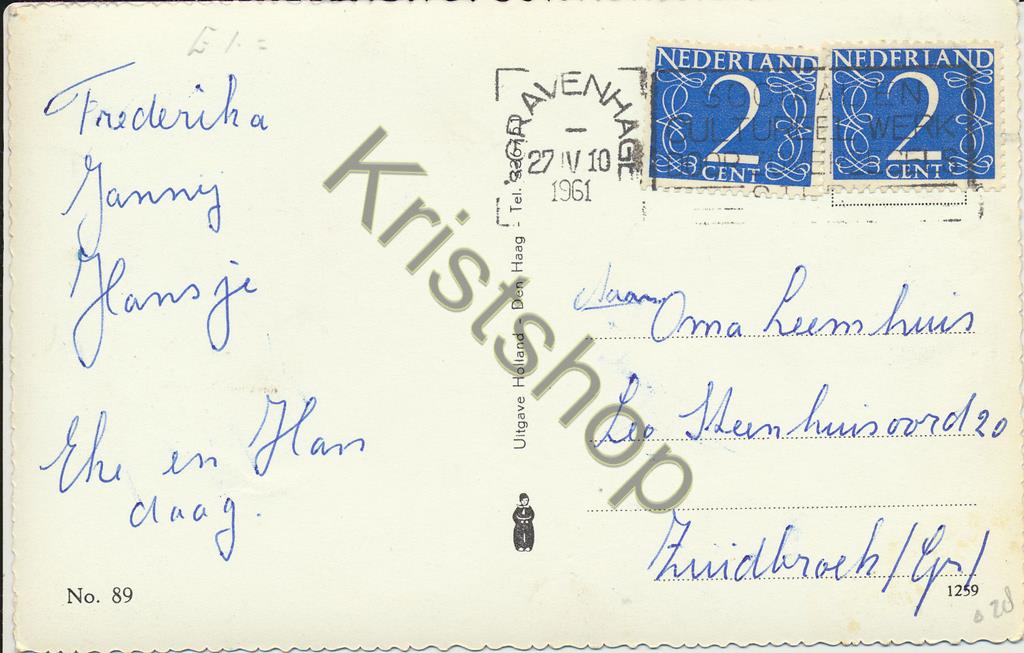 Frederika
Janny
Hansje
Eke en Han
daag.
No. 89
Uitgave Holland - Den Haag - Tel.
'S-GRAVENHAGE
27 IV 10
1961
NEDERLAND
2
CENT
NEDERLAND
2
CENT
SOCIAAL EN
CULTUREEL WERK
Aan Oma Leemhuis
Leo Steenhuisoord 20
Zuidbroek (Gr)
1259
Kristshop